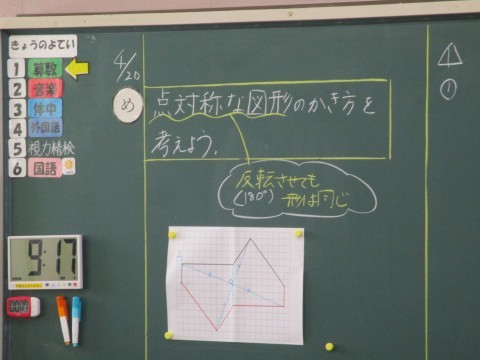 きょうのよてい
1 算数
2 音楽
3 体育
4 外国語
5 視力精検
6 国語
4/20
め
点対称な図形のかき方を
考えよう。
反転させても
(180°) 形は同じ
9:17
①